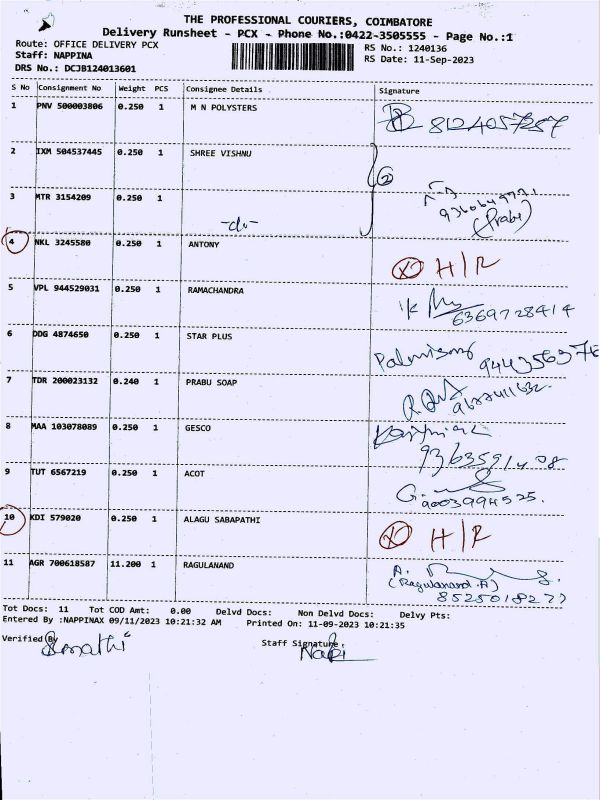 THE PROFESSIONAL COURIERS, COIMBATORE
Delivery Runsheet - PCX - Phone No.:0422-3505555 - Page No.:1
Route: OFFICE DELIVERY PCX RS No.: 1240136
Staff: NAPPINA RS Date: 11-Sep-2023
DRS No.: DCJB124013601
S No Consignment No Weight PCS Consignee Details Signature
1 PNV 500003806 0.250 1 M N POLYSTERS 8124057257
2 IXM 504537445 0.250 1 SHREE VISHNU
2
3 MTR 3154209 0.250 1 -do-
(Prabu)
4 NKL 3245580 0.250 1 ANTONY X H/R
5 VPL 944529031 0.250 1 RAMACHANDRA
6369728414
6 DDG 4874650 0.250 1 STAR PLUS
7 TDR 200023132 0.240 1 PRABU SOAP
8 MAA 103078089 0.250 1 GESCO
9 TUT 6567219 0.250 1 ACOT
G.
9003994525.
10 KDI 579020 0.250 1 ALAGU SABAPATHI X H/R
11 AGR 700618587 11.200 1 RAGULANAND A.
(Ragulanand.A)
8525018277
Tot Docs: 11 Tot COD Amt: 0.00 Delvd Docs: Non Delvd Docs: Delvy Pts:
Entered By :NAPPINAX 09/11/2023 10:21:32 AM Printed On: 11-09-2023 10:21:35
Verified By Staff Signature.